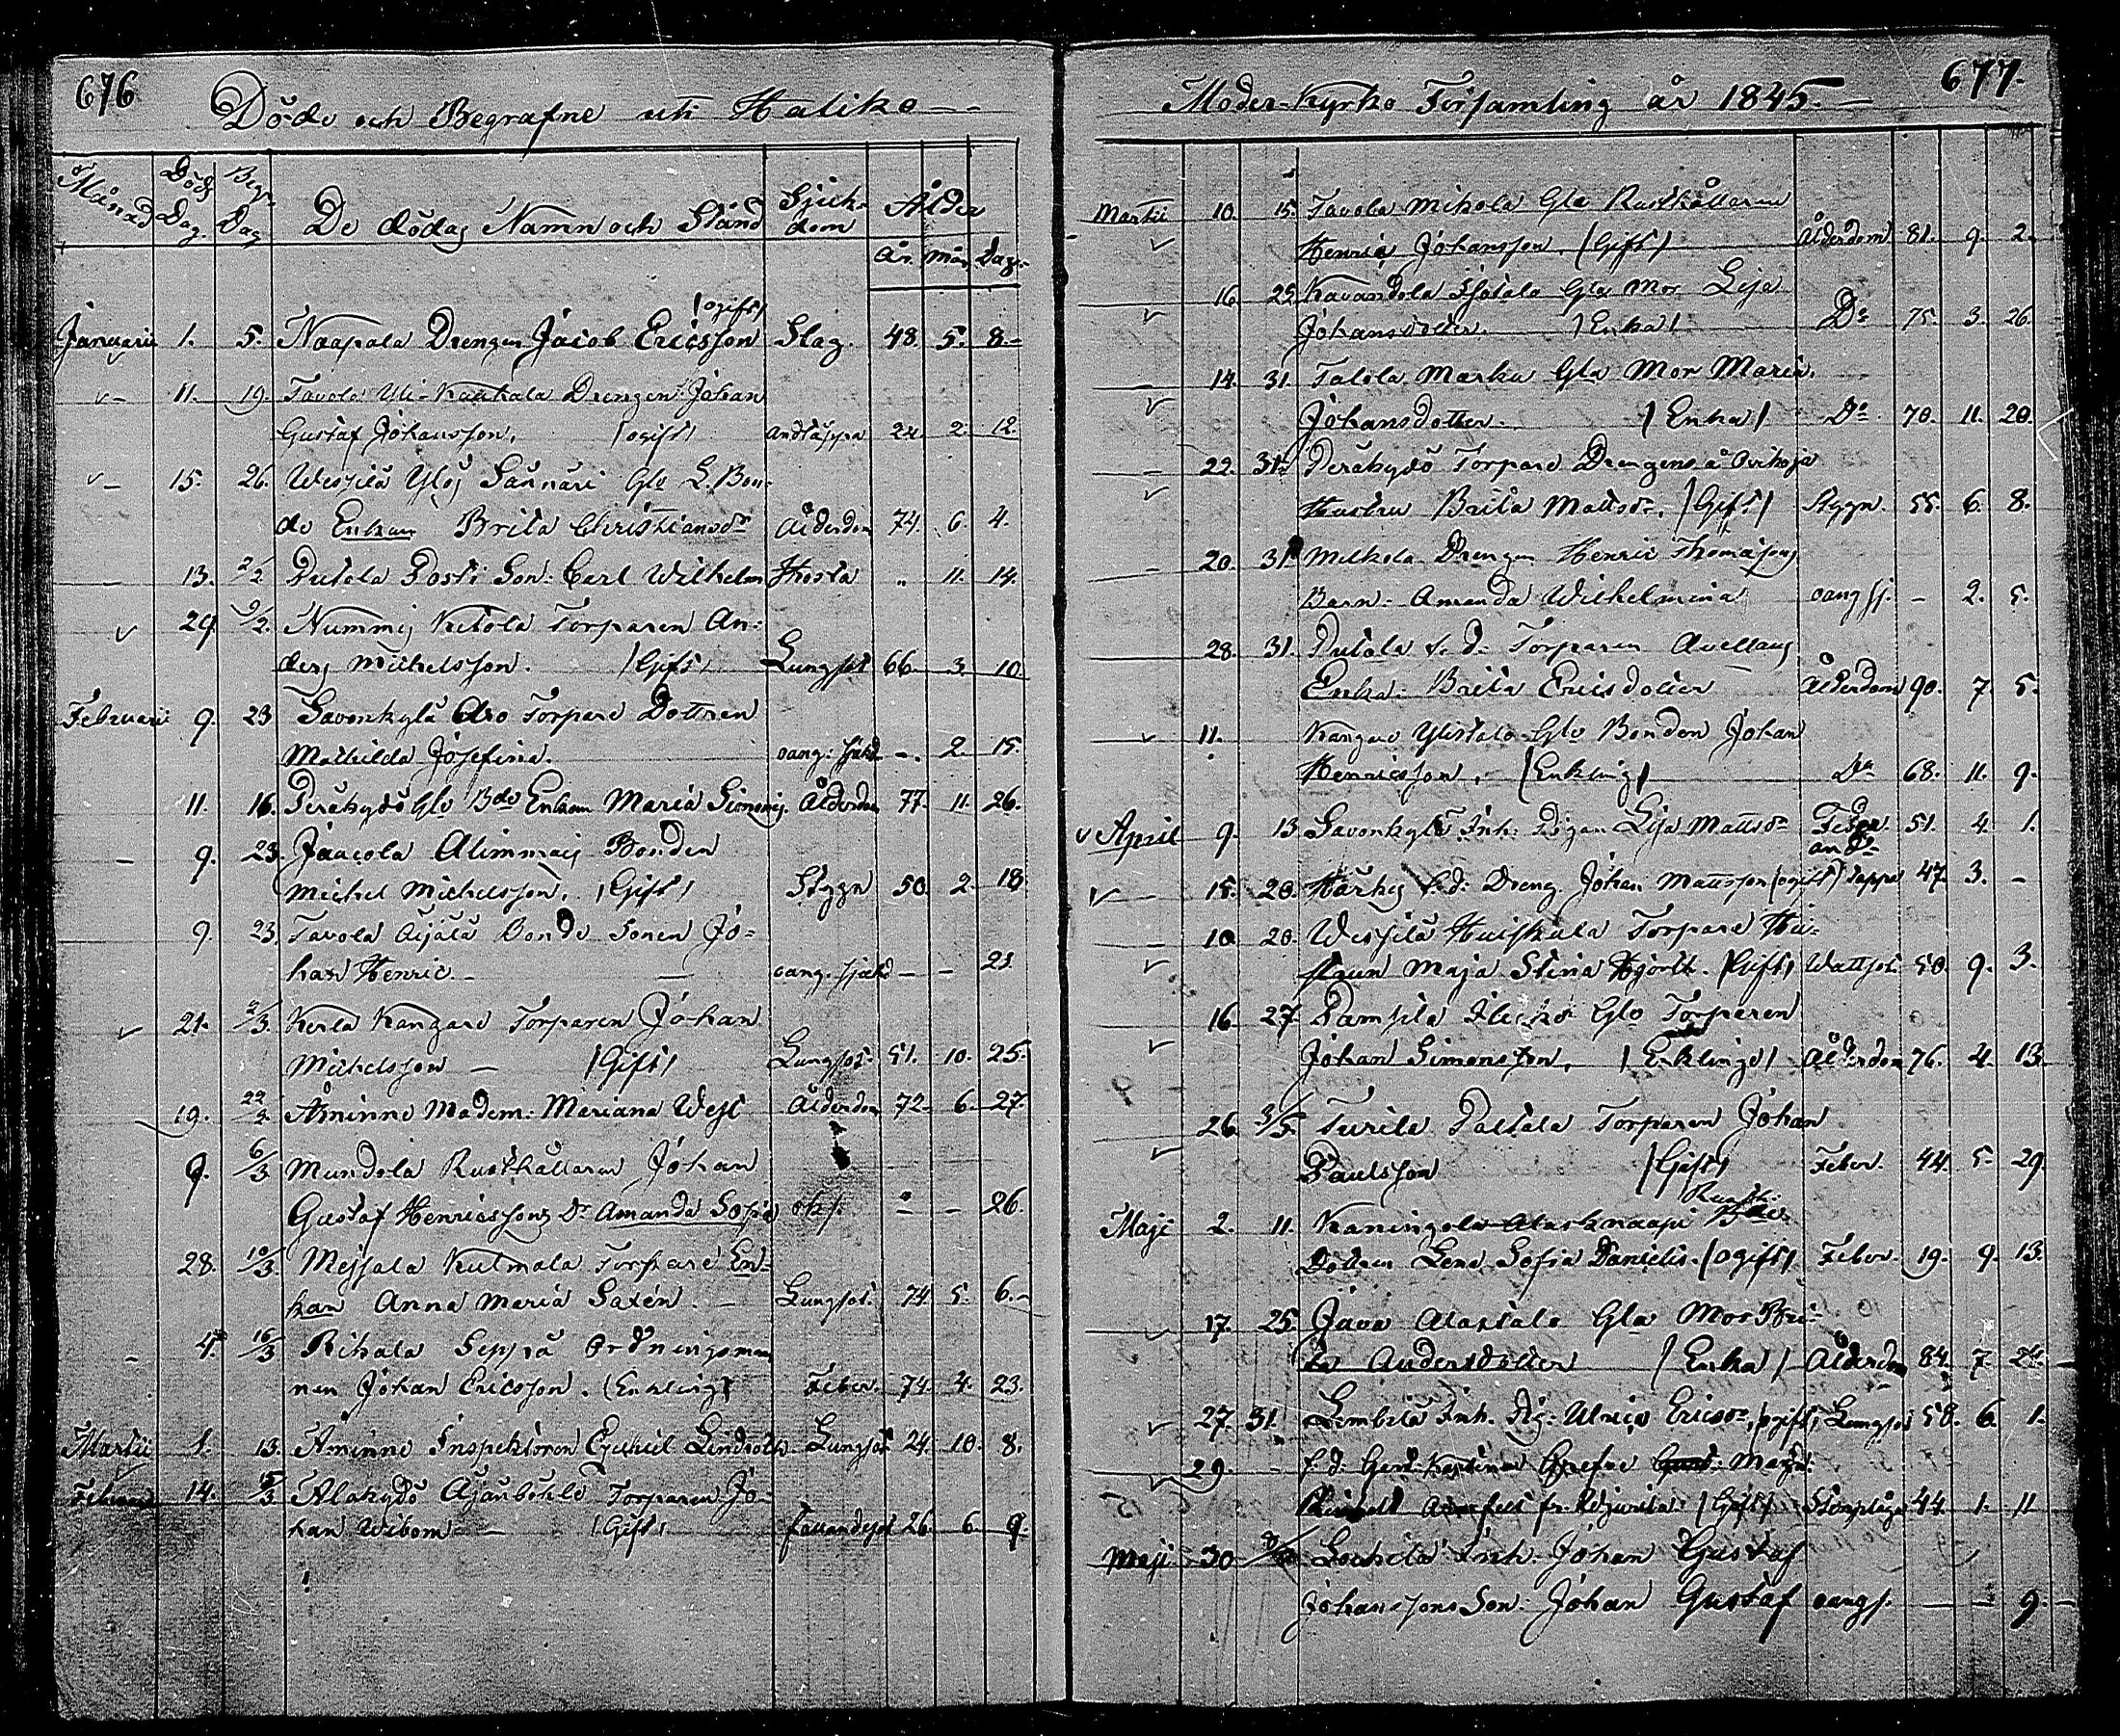 676
Döde och Begrafne uti Haliko
Månad Död Dag. Begr. Dag De dödas Namn och Stånd Sjukdom Ålder
År. mån. Dag.
(ogift)
Januarii 1. 5. Naapala Drengen Jacob Ericsson Slag. 48. 5. 8.
11. 19. Tavola Uli-Kaukala Drengen Johan
Gustaf Johansson. (ogift) andtäppa 24. 2. 12.
15. 26. Wessilä Ylöj Sannäri Gle S. Bon-
de Enkan Brita Christiansdr Ålderdom 74. 6. 4.
13. 2/2 Putola Posti Son: Carl Wilhelm Hosta " 11. 14.
29. 9/2. Nummij Ketola Torparen An-
ders Michelsson. (Gift) Lungsot 66. 3. 10.
Februari 9. 23 Savonkylä Aro Torpare Dottren
Mathilda Josefina. oang: sjukd -. 2. 15.
11. 16. Peräkydö Gle Bde Enkan Maria Simonij. Ålderdom 77. 11. 26.
9. 23. Jaacola Alimmaij Bonden
Michel Michelsson. (Gift) Stygn 50. 2. 18.
9. 23. Tavola Äijälä Bonde Sonen Jo-
han Henric. oang. sjukd - - 21.
21. 2/3. Kerla Kangare Torparen Johan
Michelsson - (Gift) Lungsot. 51. 10. 25.
19. 22/2 Åminne Madem. Mariana West Ålderdom 72. 6. 27.
9. 6/3 Mundola Rusthållaren Johan
Gustaf Henricssons Dr Amanda Sofia okj. " - 26.
28. 10/3. Mejsala Kulmala Torpare En-
kan Anna Maria Saxén. - Lungsot. 74. 5. 6.-
4. 16/3 Rihala Seppä Ordningsman-
nen Johan Ericsson. (Enkling) Feber. 74. 4. 23.
Martii 1. 13. Åminne Inspektoren Lindroth Lungsot 24. 10. 8.
Februari 14. 15/3 Alakydö Torparen Jo-
han Wibom - (Gift) fallandesot 26. 6. 9.
677.
Moder-Kyrko Församling år 1845.
Martii 10. 15. Tavola Mikola Gle Rusthållaren
Henric Johansson. (Gift) Ålderdom 81. 9. 2.
16. 25. Kavandola Isotalo Gla Mor Lisa
Johansdotter. (Enka) Do 75. 3. 26.
14. 31. Talola Marku Gla Mor Maria
Johansdotter. (Enka) Do 70. 11. 20.
22. 31. Peräkydö Torpare Drengens å Orikoja
Hustru Brita Mattsdr. (Gift) Stygn. 55. 6. 8.
20. 31. Melkola Drengen Henric Thomassons
Barn: Amanda Wilhelmina oang sj. - 2. 5.
28. 31. Putola f.d. Torparen Avellans
Enka: Brita Ericsdotter Ålderdom 90. 7. 5.
11. Kangare Ylistalo Gle Bonden Johan
Henricsson. (Enkling) Do 68. 11. 9.
April 9. 13 Savonkylä Inh: Pigan Lisa Mattsdr Feber. 51. 4. 1.
and-
15. 20. Härkij f.d: Dreng. Johan Mattsson (ogift) täppa 47 3. -
10. 20. Wessilä Huiskula Torpare Hu-
strun Maja Stina Hjorth. (Gift) Wattsot. 50. 9. 3.
16. 27 Pamsila Gle Torparen
Johan Simonsson. (Enkling) Ålderdom 76. 4. 13
26. 3/5. Turila Paltala Torparen Johan
Paulsson (Gift) Feber. 44. 5. 29.
Rusth.
Maji 2. 11. Kaningola Alasknaapi Bde
Dottren Lena Sofia Danielis. (ogift) Feber. 19. 9. 13.
17. 25. Java Alastalo Gla Mor Bri-
ta Andersdotter (Enka) Ålderdom 84. 7. 24.
27. 31. Lembilä Inh. Pig: Ulrica Ericsdr. (ogift) Lungsot 58. 6. 1.
29. - f.d: Magn:
(Gift) 44. 1. 11
Maji 30 Inh. Johan Gustaf
Johanssons Son: Johan Gustaf oangf. - - 9.